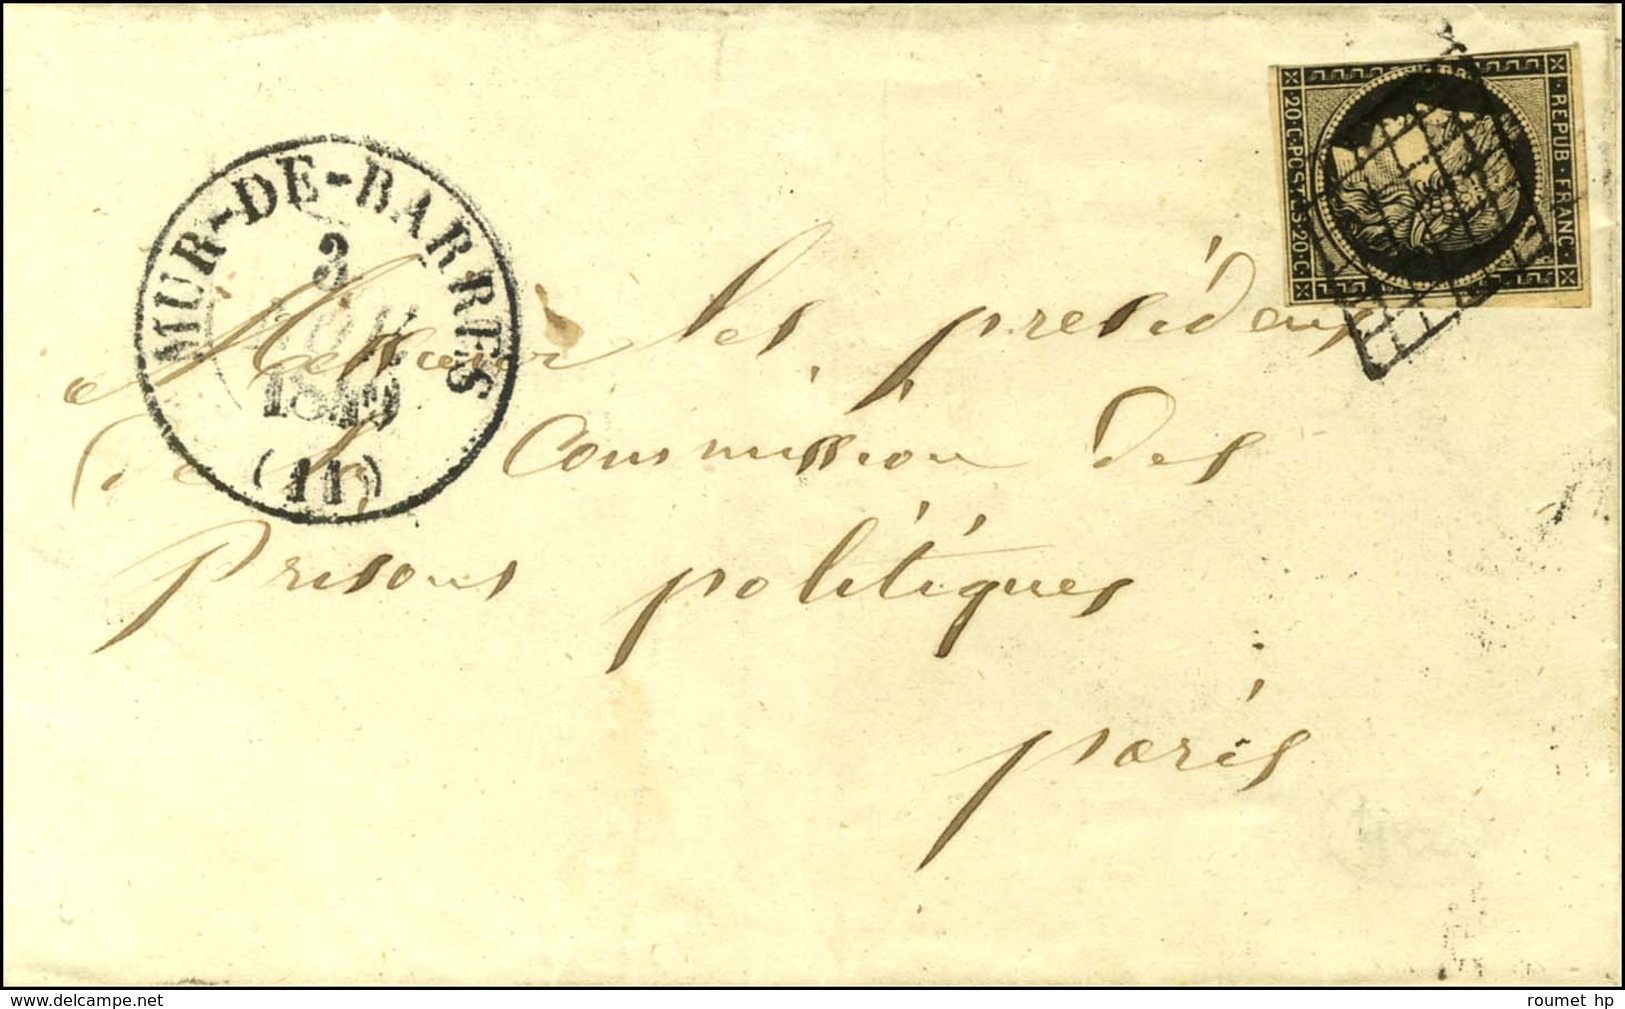 REPUB·FRANC·
20·C·POSTES·20·C
MUR-DE-BARRES
3
1849
(11)
Messieurs les présidens
de la Commission des
Prisons politiques
paris
delcampe.net
roumet hp